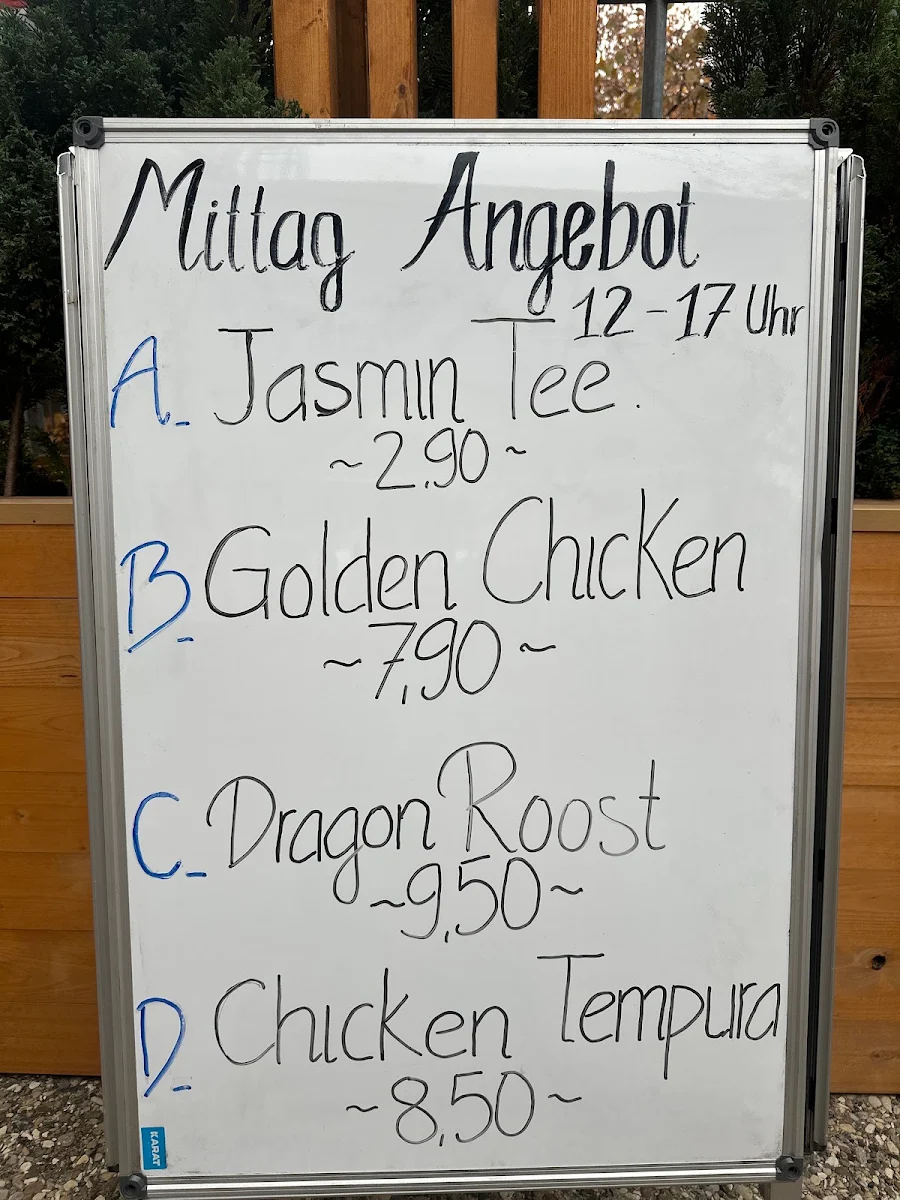 Mittag Angebot
12-17 Uhr
A. Jasmin Tee.
~2,90~
B. Golden Chicken
~7,90~
C. Dragon Roost
~9,50~
D. Chicken Tempura
~8,50~
KARAT